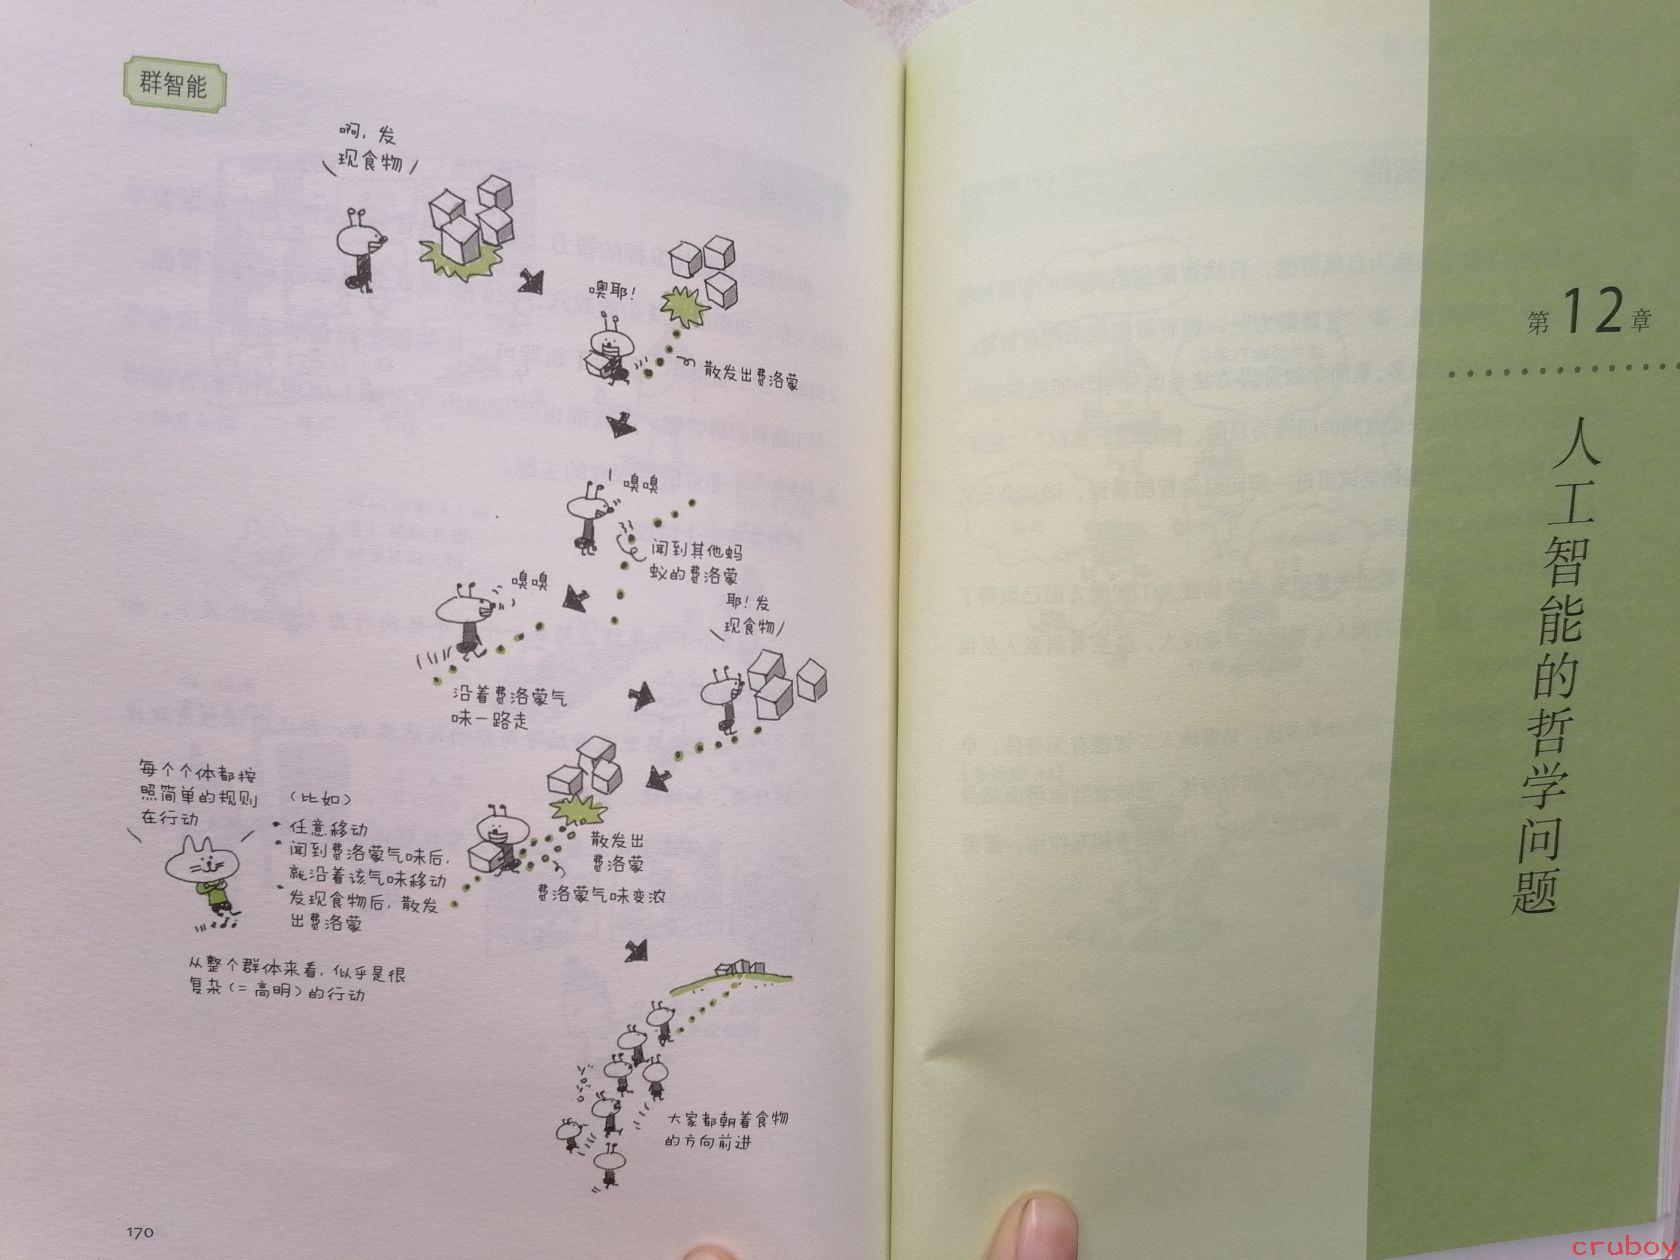 群智能
啊，发
现食物
噢耶！
散发出费洛蒙
嗅嗅
闻到其他蚂
蚁的费洛蒙
嗅嗅
沿着费洛蒙气
味一路走
耶！发
现食物
散发出
费洛蒙
费洛蒙气味变浓
每个个体都按
照简单的规则
在行动
（比如）
• 任意移动
• 闻到费洛蒙气味后，
就沿着该气味移动
• 发现食物后，散发
出费洛蒙
从整个群体来看，似乎是很
复杂（= 高明）的行动
大家都朝着食物
的方向前进
170
第12章
人工智能的哲学问题
cruboy